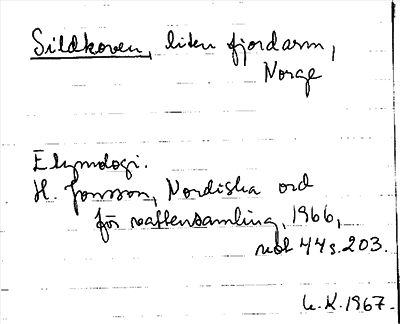 Sildkoven, liten fjordarm,
Norge
Etymologi.
H. Jonsson, Nordiska ord
för vattensamling, 1966,
not 44 s. 203.
K. 1967.